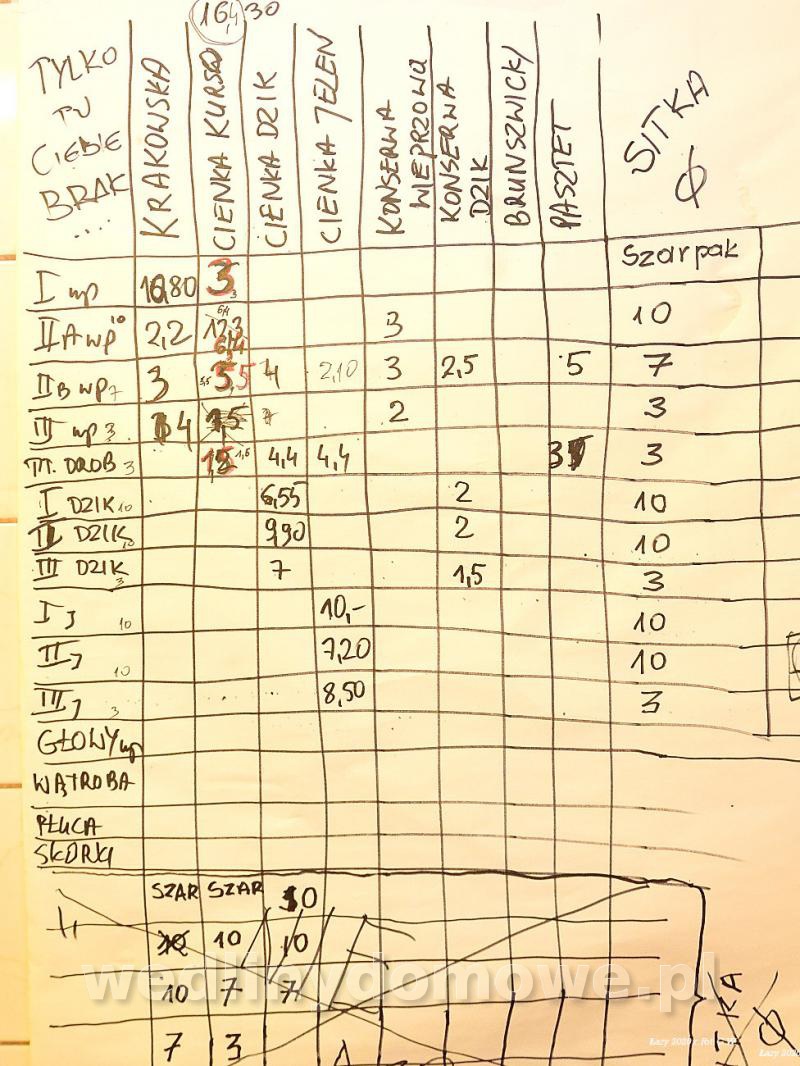 16,4 30
TYLKO
TU
CIEBIE
BRAK
.....
KRAKOWSKA
CIENKA KURSO
CIENKA DZIK
CIENKA JELEŃ
KONSERWA
WIEPRZOWA
KONSERWA
DZIK
BRUNSZWICK/
PASZTET
SITKA
Ø
Szarpak
I wp 3 10
II A wp 10 2,2 3
6,4
II B wp 7 3 4 2,10 3 2,5 5 7
III wp 3 4 2 3
M. DROB 3 4,4 4,4 3
I DZIK 10 6,55 2 10
II DZIK 10 9,90 2 10
III DZIK 3 7 1,5 3
I J 10 10,- 10
II J 10 7,20 10
III J 3 8,50 3
GŁOWY wp
WĄTROBA
PŁUCA
SKÓRKI
SZAR SZAR 10
10 10 10
10 7 7
7 3
Ø
wedlinydomowe.pl